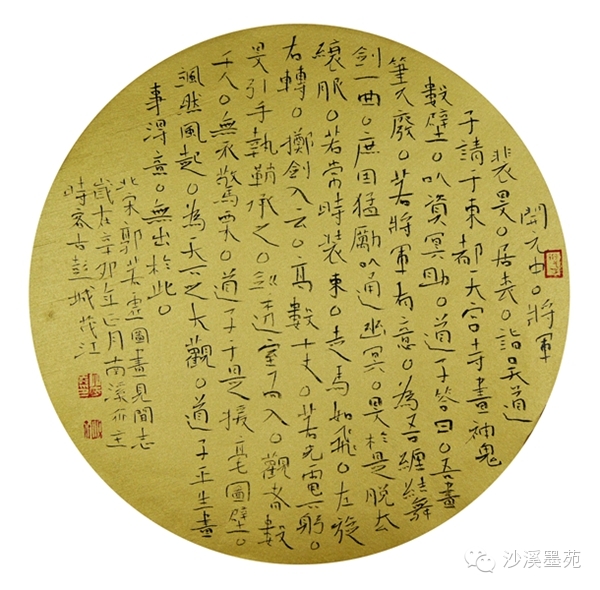 開元中。將軍
裴旻。居喪。詣吳道
子請于東都天宮寺畫神鬼
數壁。以資冥助。道子答曰。吾畫
筆久廢。若將軍有意。為吾纏結舞
劍一曲。庶因猛勵以通幽冥。旻於是脫去
縗服。若常時裝束。走馬如飛。左旋
右轉。擲劍入云。高數十丈。若光電下射。
旻引手執鞘承之。劍透室而入。觀者數
千人。無不驚栗。道子于是援毫圖壁。
颯然風起。為天下之大觀。道子平生畫
事得意。無出於此。
北宋郭若虛圖畫見聞志
歲在辛卯年正月南溪齋主
時客古彭城茂江
沙溪墨苑